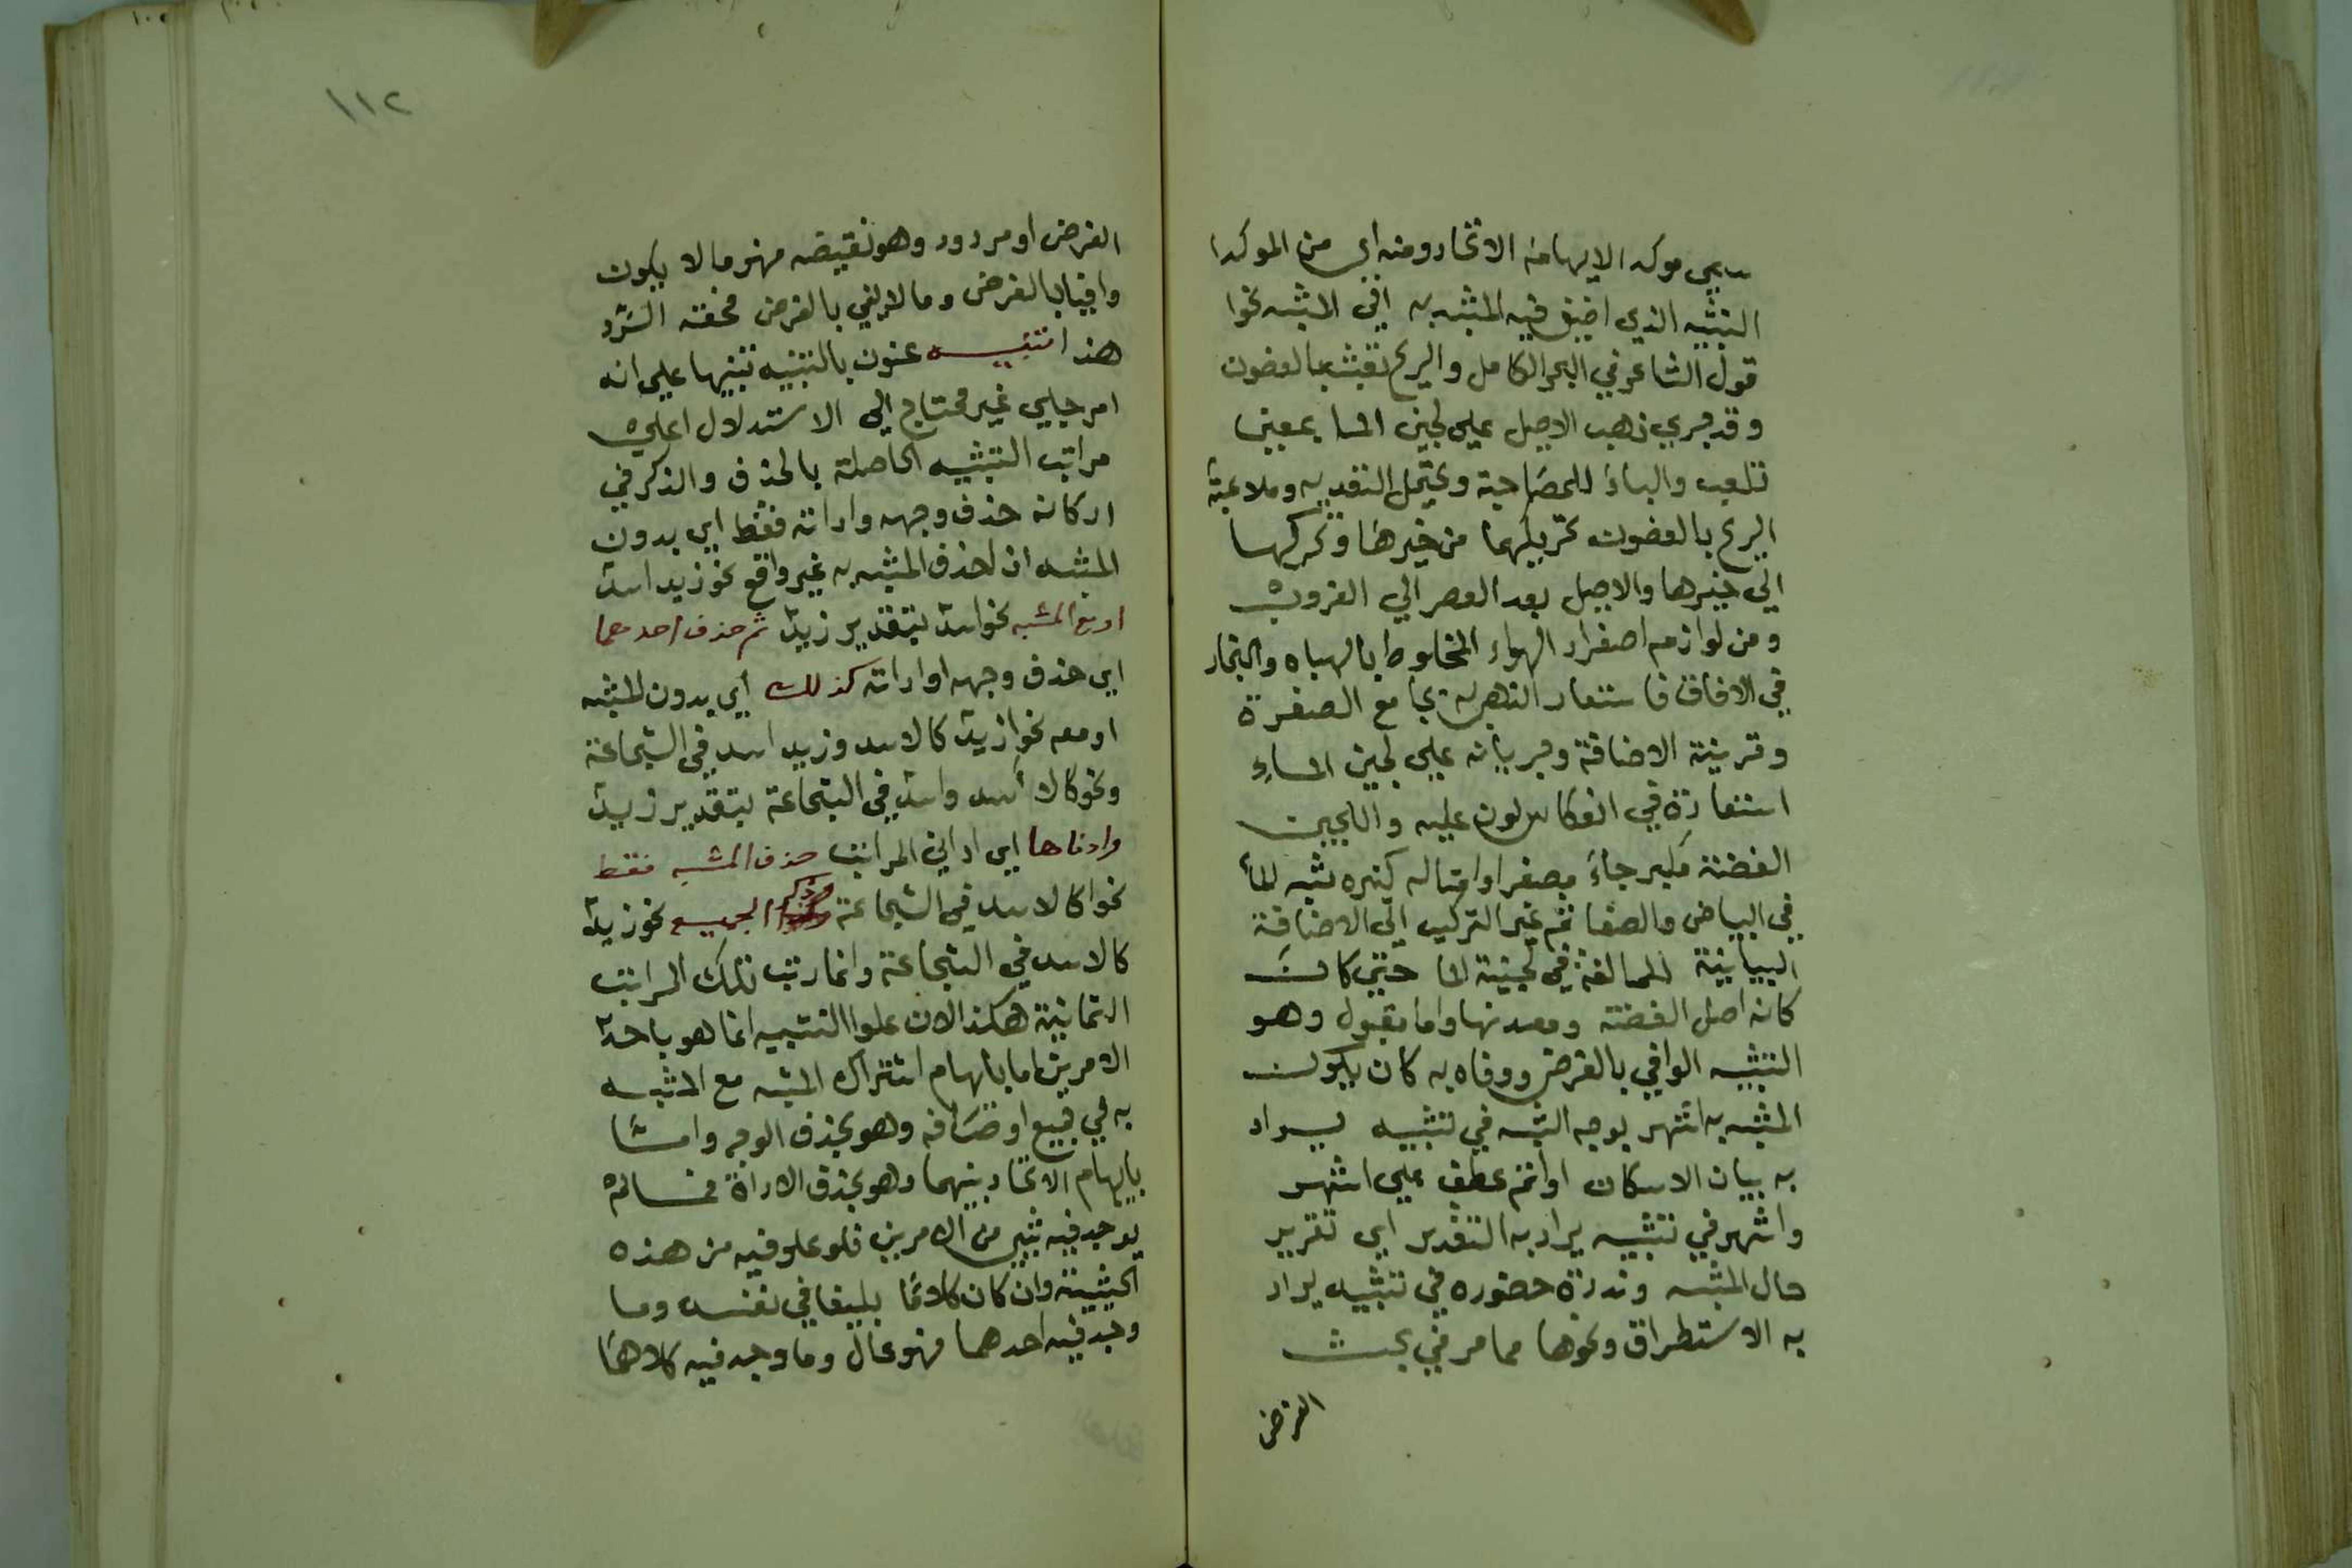 سمي موكدا لايهامه الاتحاد ومنه اي من الموكدا
التشبيه الذي اضيف فيه المشبه به الي المشبه نحوا
قول الشاعر في البحر الكامل والريح تعبث بالغصون
وقد جري ذهب الاصيل علي لجين الما بمعني
تلعب والباء للمصاحبة ويحتمل التعديه وملاعبة
الريح بالغصون تحريكها من خيرها وتحركها
الي خيرها والاصيل بعد العصر الي الغروب
ومن لوازمه اصفرار الهواء المخلوط بالهباه والبخار
في الافاق فاستعار الذهب له بجامع الصفرة
وقرينة الاضافة وجريانه علي لجين الماء
استعارة في انعكاس لون عليه واللجين
الفضة مكبر جاء مصغرا وامثاله كثيره شبه الماء
في البياض والصفا ثم غير التركيب الي الاضافة
البيانية للمبالغة في لجينية الما حتي كانت
كانه اصل الفضة ومعدنها واما مقبول وهو
التشبيه الوافي بالغرض ووفاه به كان يكون
المشبه به اشهر بوجه الشبه في تشبيه يراد
به بيان الامكان او اتم عطف علي اشهر
واشهر في تشبيه يراد به التقدير اي تقرير
حال المشبه وندرة حضوره في تشبيه يراد
به الاستطراف ونحوها مما مر في بحث
الغرض
١١٢
الغرض او مردود وهو نقيضه فهو ما لا يكون
وافيا بالغرض وما لا يفي بالغرض فحقه الرد
هذا تنبيه عنون بالتنبيه تنبيها علي انه
امر جلي غير محتاج الي الاستدلال اعلي
مراتب التشبيه الحاصلة بالحذف والذكر في
اركانه حذف وجهه واداته فقط اي بدون
المشبه اذ حذف المشبه به غير واقع نحو زيد اسد
او مع المشبه نحو اسد بتقدير زيد ثم حذف احدهما
اي حذف وجهه او اداته كذلك اي بدون المشبه
او معه نحو زيد كالاسد وزيد اسد في الشجاعة
ونحو كالاسد واسد في الشجاعة بتقدير زيد
وادناها اي ادني المراتب حذف المشبه فقط
نحوا كالاسد في الشجاعة وذكر الجميع نحو زيد
كالاسد في الشجاعة وانما رتب تلك المراتب
الثمانية هكذا لان علوا التشبيه انما هو باحد
الامرين اما بايهام اشتراك المشبه مع المشبه
به في جميع اوصافه وهو بحذف الوجه واما
بايهام الاتحاد بينهما وهو بحذف الاداة فما لم
يوجد فيه شيء من الامرين فلو علو فيه من هذه
الحيثية وان كان كلاما بليغا في نفسه وما
وجد فيه احدهما فهو عال وما وجد فيه كلاهما